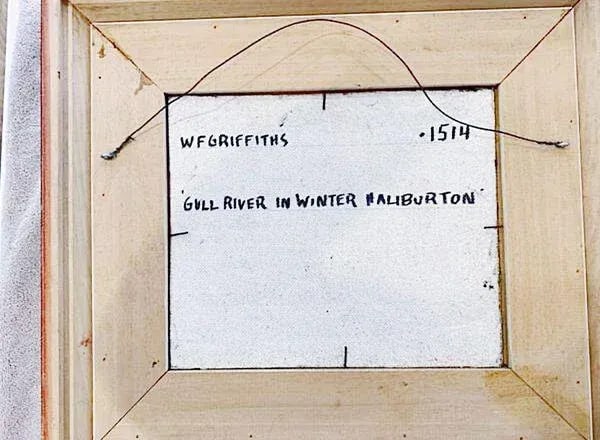 WFGRIFFITHS •1514
"GULL RIVER IN WINTER HALIBURTON"